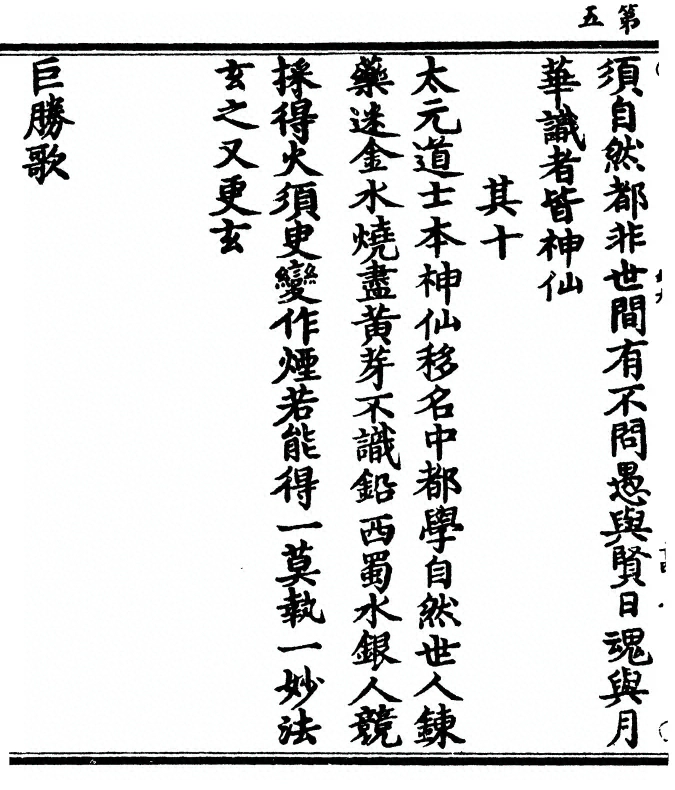 第五
須自然都非世間有不問愚與賢日魂與月
華識者皆神仙
其十
太元道士本神仙移名中都學自然世人鍊
藥迷金水燒盡黃芽不識鉛西蜀水銀人競
採得火須臾變作煙若能得一莫執一妙法
玄之又更玄
巨勝歌